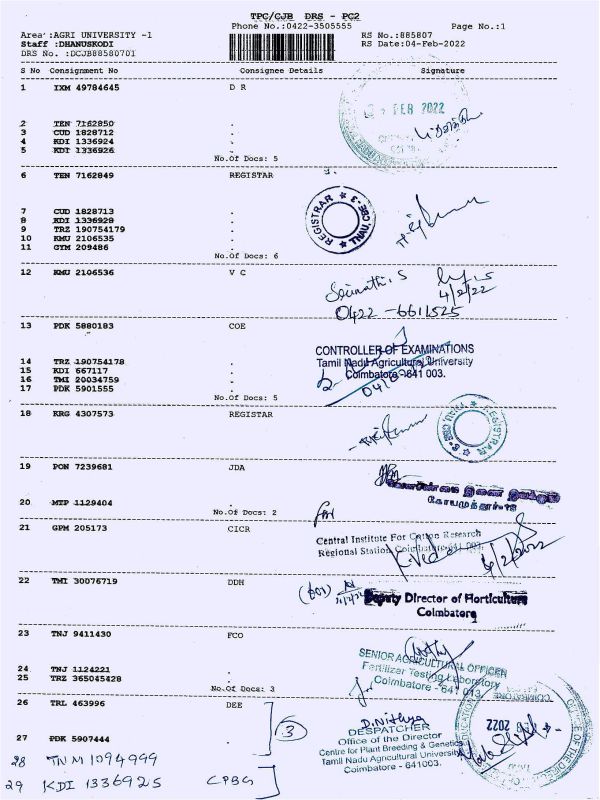 TPC/CJB DRS - PC2
Phone No.:0422-3505555 Page No.:1
Area :AGRI UNIVERSITY -1 RS No.:885807
Staff :DHANUSKODI RS Date:04-Feb-2022
DRS No. :DCJB88580701
S No Consignment No Consignee Details Signature
1 IXM 49784645 D R
FEB 2022
2 TEN 7162850 .
3 CUD 1828712 .
4 KDI 1336924 .
5 KDI 1336926 .
No.Of Docs: 5
6 TEN 7162849 REGISTAR
REGISTRAR ★ TNAU, CBE-3 ★
7 CUD 1828713 .
8 KDI 1336928 .
9 TRZ 190754179 .
10 KMU 2106535 .
11 GTM 209486 .
No.Of Docs: 6
12 KMU 2106536 V C
4/2/22
0422 -6611525
13 PDK 5880183 COE
CONTROLLER OF EXAMINATIONS
Tamil Nadu Agricultural University
Coimbatore-641 003.
14 TRZ 190754178 .
15 KDI 667117 .
16 TMI 20034759 .
17 PDK 5901555 .
No.Of Docs: 5
18 KRG 4307573 REGISTAR
REGISTRAR ★ TNAU, CBE-3 ★
19 PON 7239681 JDA
20 MTP 1129404 .
No.Of Docs: 2
21 GPM 205173 CICR
Central Institute For Cotton Research
Regional Station, Coimbatore-641 003.
4/2/2022
22 TMI 30076719 DDH
Deputy Director of Horticulture
Coimbatore
23 TNJ 9411430 FCO
SENIOR AGRICULTURAL OFFICER
Fertilizer Testing Laboratory
Coimbatore - 641 013.
24 TNJ 1124221 .
25 TRZ 365045428 .
No.Of Docs: 3
26 TRL 463996 DEE
3
D.Nithya
DESPATCHER
Office of the Director
Centre for Plant Breeding & Genetics
Tamil Nadu Agricultural University
Coimbatore - 641003.
2022
27 PDK 5907444 .
28 TNM 1094999
29 KDI 1336925 CPBG